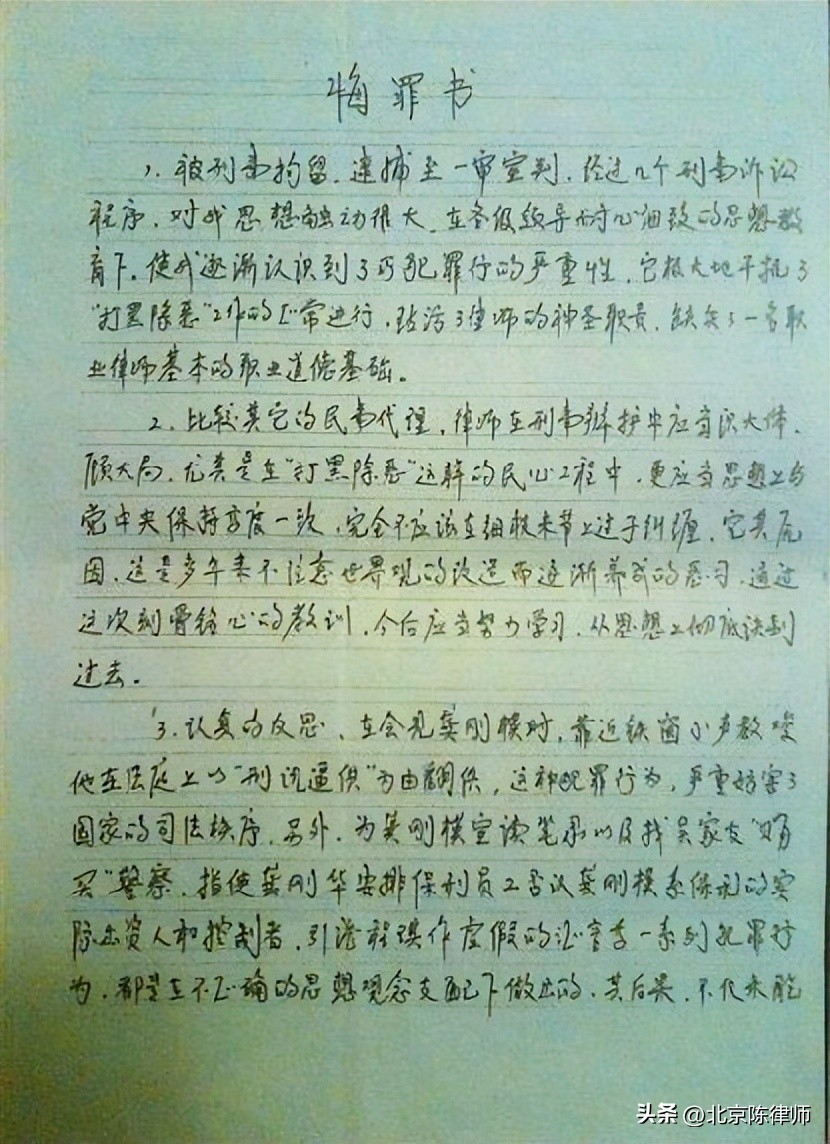 悔罪书
1、被刑事拘留、逮捕至一审宣判,经过几个刑事诉讼
程序,对我思想触动很大,在各级领导耐心细致的思想教
育下,使我逐渐认识到了所犯罪行的严重性,它极大地干扰了
“打黑除恶”工作的正常进行,玷污了律师的神圣职责,缺失了一名职
业律师基本的职业道德基础。
2、比较其它的民事代理,律师在刑事辩护中应当识大体、
顾大局,尤其是在“打黑除恶”这样的民心工程中,更应当思想上与
党中央保持高度一致,完全不应该在细枝末节上过于纠缠,究其原
因,这是多年来不注意世界观的改造而逐渐养成的恶习,通过
这次刻骨铭心的教训,今后应当努力学习,从思想上彻底谈到
过去。
3、认真的反思,在会见龚刚模时,靠近铁窗小声教唆
他在法庭上以“刑讯逼供”为由翻供,这种犯罪行为,严重妨害了
国家的司法秩序,另外,为龚刚模宣读笔录以及找吴家友“贿
买”警察,指使龚刚华安排保利员工否认龚刚模系保利的实
际出资人和控制者,引诱程琪作虚假的证言等一系列犯罪行
为,都是在不正确的思想观念支配下做出的,其后果,不仅未能
头条 @北京陈律师